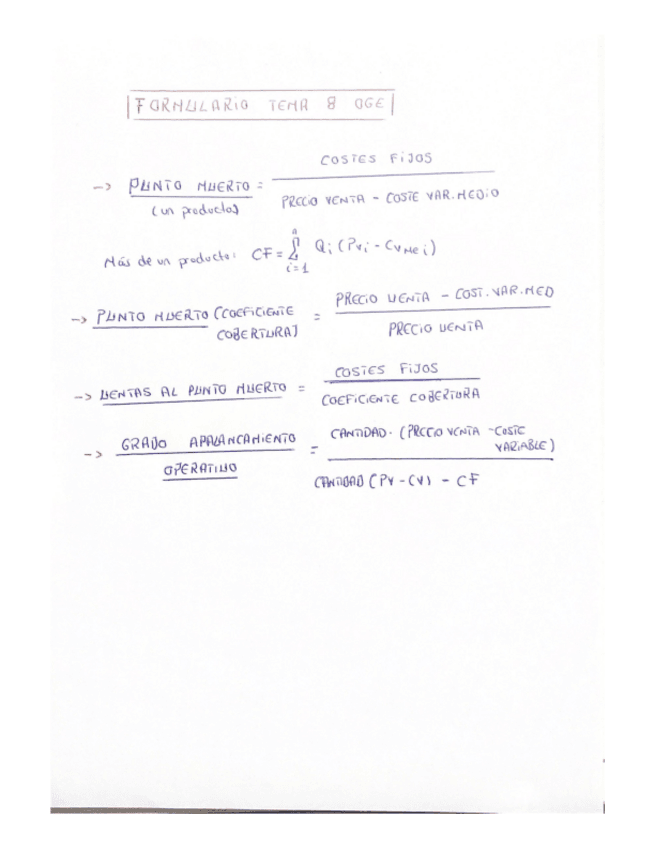 FORMULARIO TEMA 8 OGE
-> PUNTO MUERTO = COSTES FIJOS / PRECIO VENTA - COSTE VAR. MEDIO
(un producto)
Más de un producto: CF = n ∑ i=1 Qi (Pvi - CvMei)
-> PUNTO MUERTO (COEFICIENTE COBERTURA) = PRECIO VENTA - COST. VAR. MED / PRECIO VENTA
-> VENTAS AL PUNTO MUERTO = COSTES FIJOS / COEFICIENTE COBERTURA
-> GRADO APALANCAMIENTO OPERATIVO = CANTIDAD · (PRECIO VENTA - COSTE VARIABLE) / CANTIDAD (PV - CV) - CF